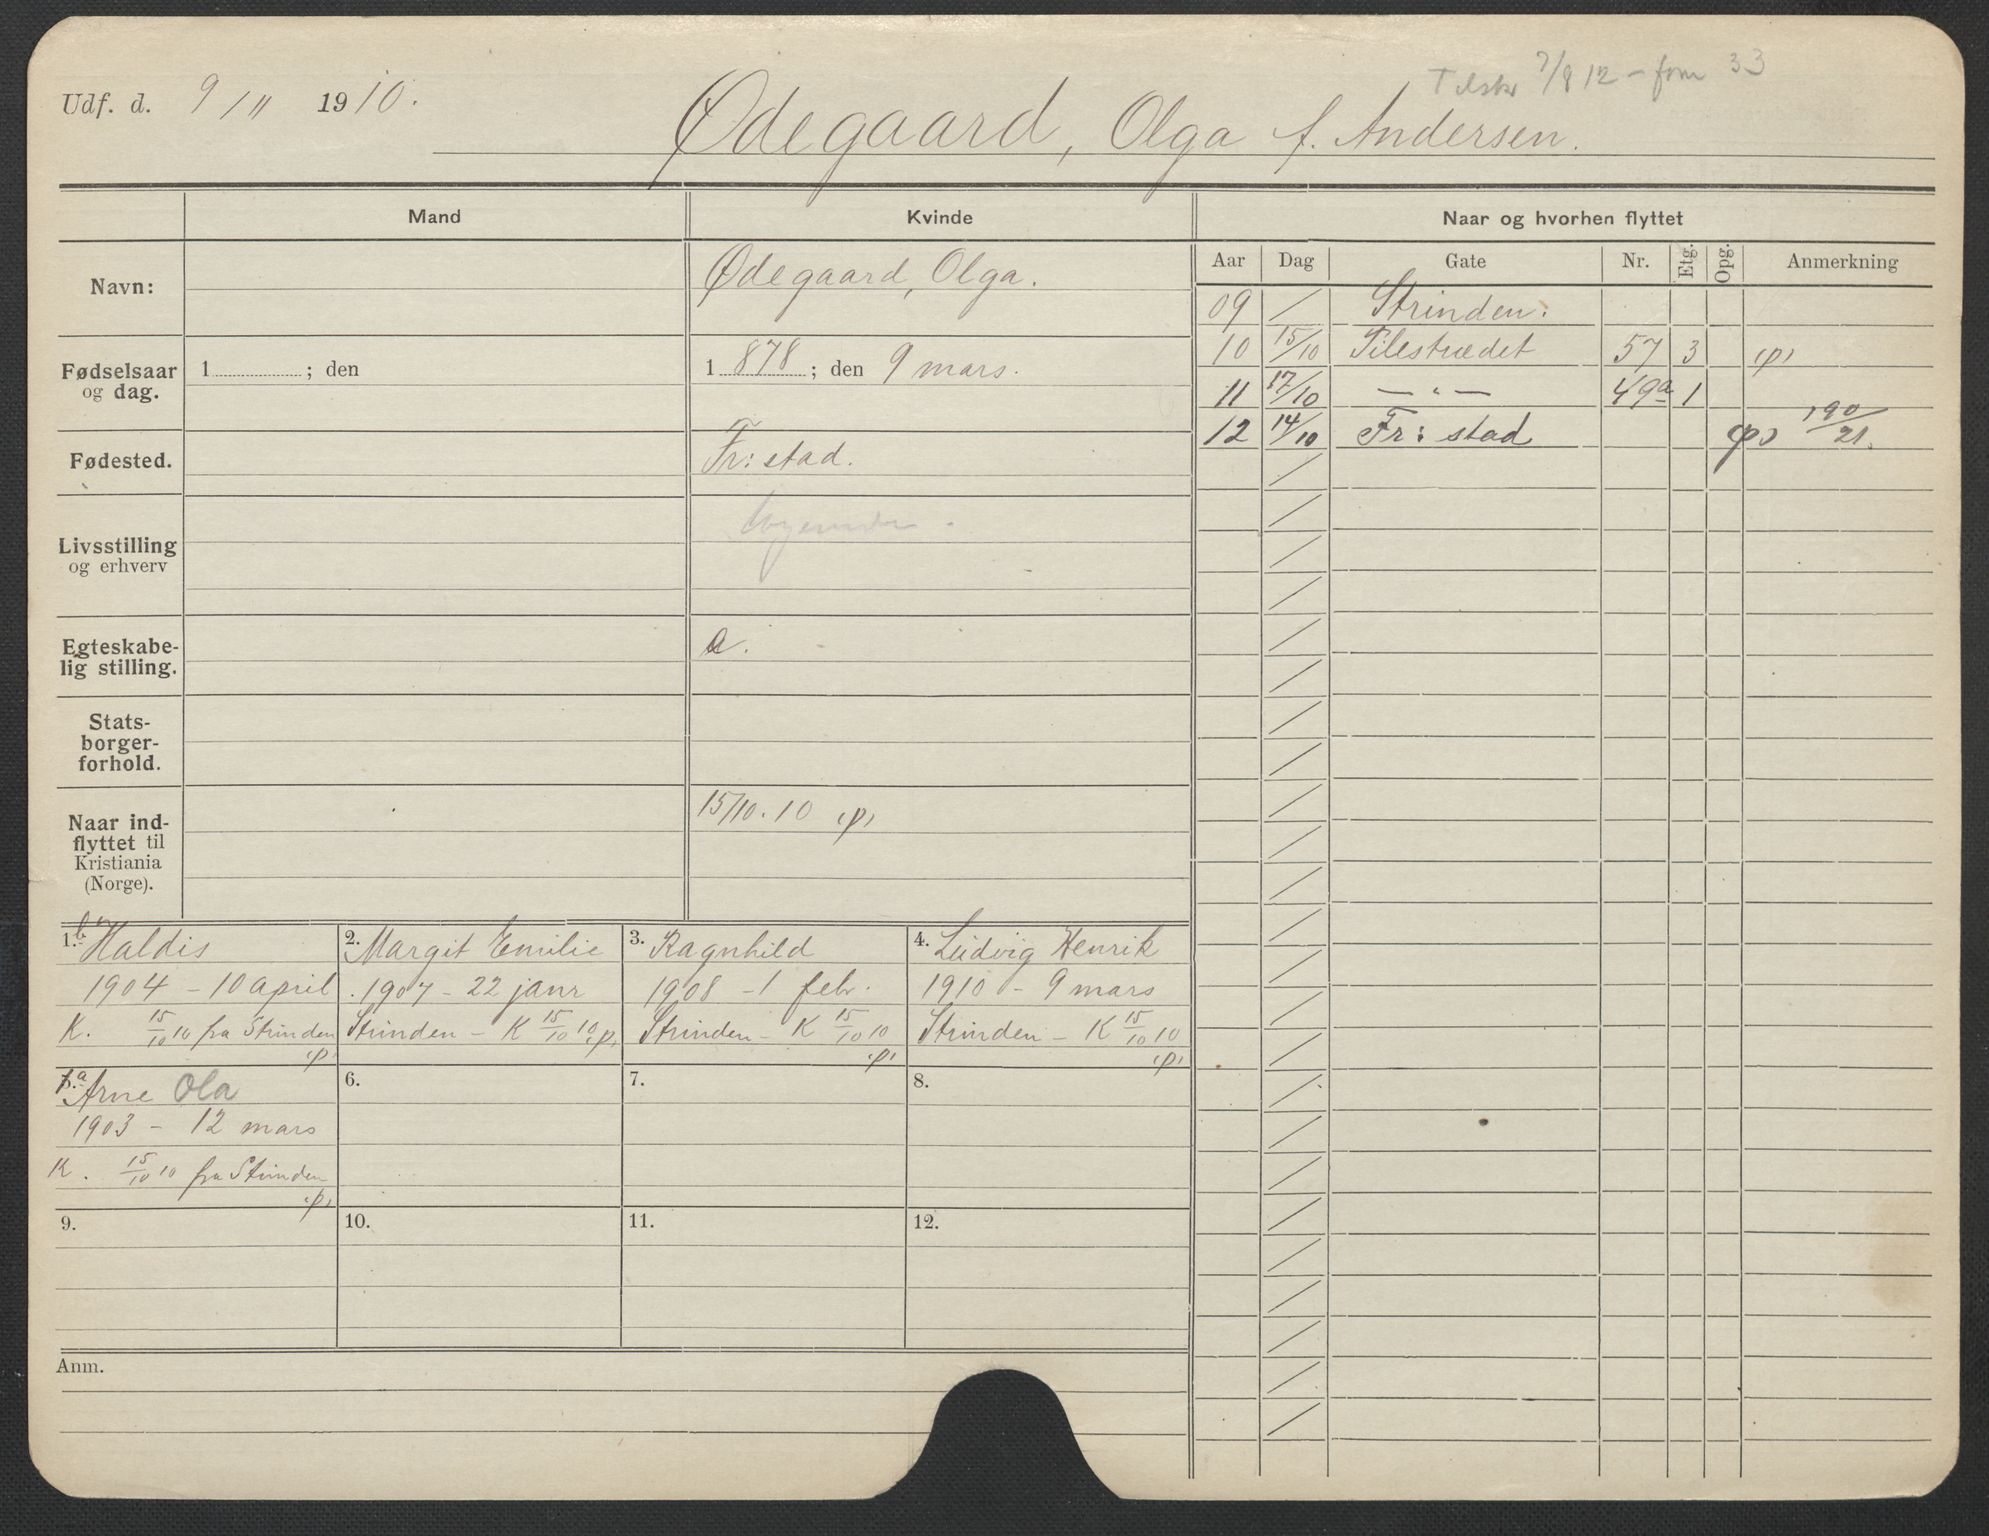 Udf. d. 9/11 1910.
Tilskr 7/8 12 – fom 33
Ødegaard, Olga f. Andersen.
Mand Kvinde Naar og hvorhen flyttet
Aar Dag Gate Nr. Etg. Opg. Anmerkning
Navn: Ødegaard, Olga.
09 / Strinden.
10 15/10 Pilestrædet 57 3 (p)
11 17/10 — " — 49a 1
12 14/10 Fr: stad (p) 190/21.
Fødselsaar
og dag.
1 ; den
1 878 ; den 9 mars.
Fødested. Fr: stad.
Livsstilling
og erhverv
Egteskabe-
lig stilling.
a.
Stats-
borger-
forhold.
Naar ind-
flyttet til
Kristiania
(Norge).
15/10. 10 (p)
1. b Haldis
1904 – 10 april
K. 15/10 10 fra Strinden
(p)
2. Margit Emilie
1907 – 22 janr
Strinden – K 15/10 10 (p)
3. Ragnhild
1908 – 1 febr.
Strinden – K 15/10 10
(p)
4. Ludvig Henrik
1910 – 9 mars
Strinden – K 15/10 10
(p)
5. a Arne Ola
1903 – 12 mars
K. 15/10 10 fra Strinden
(p)
6.
7.
8.
9.
10.
11.
12.
Anm.